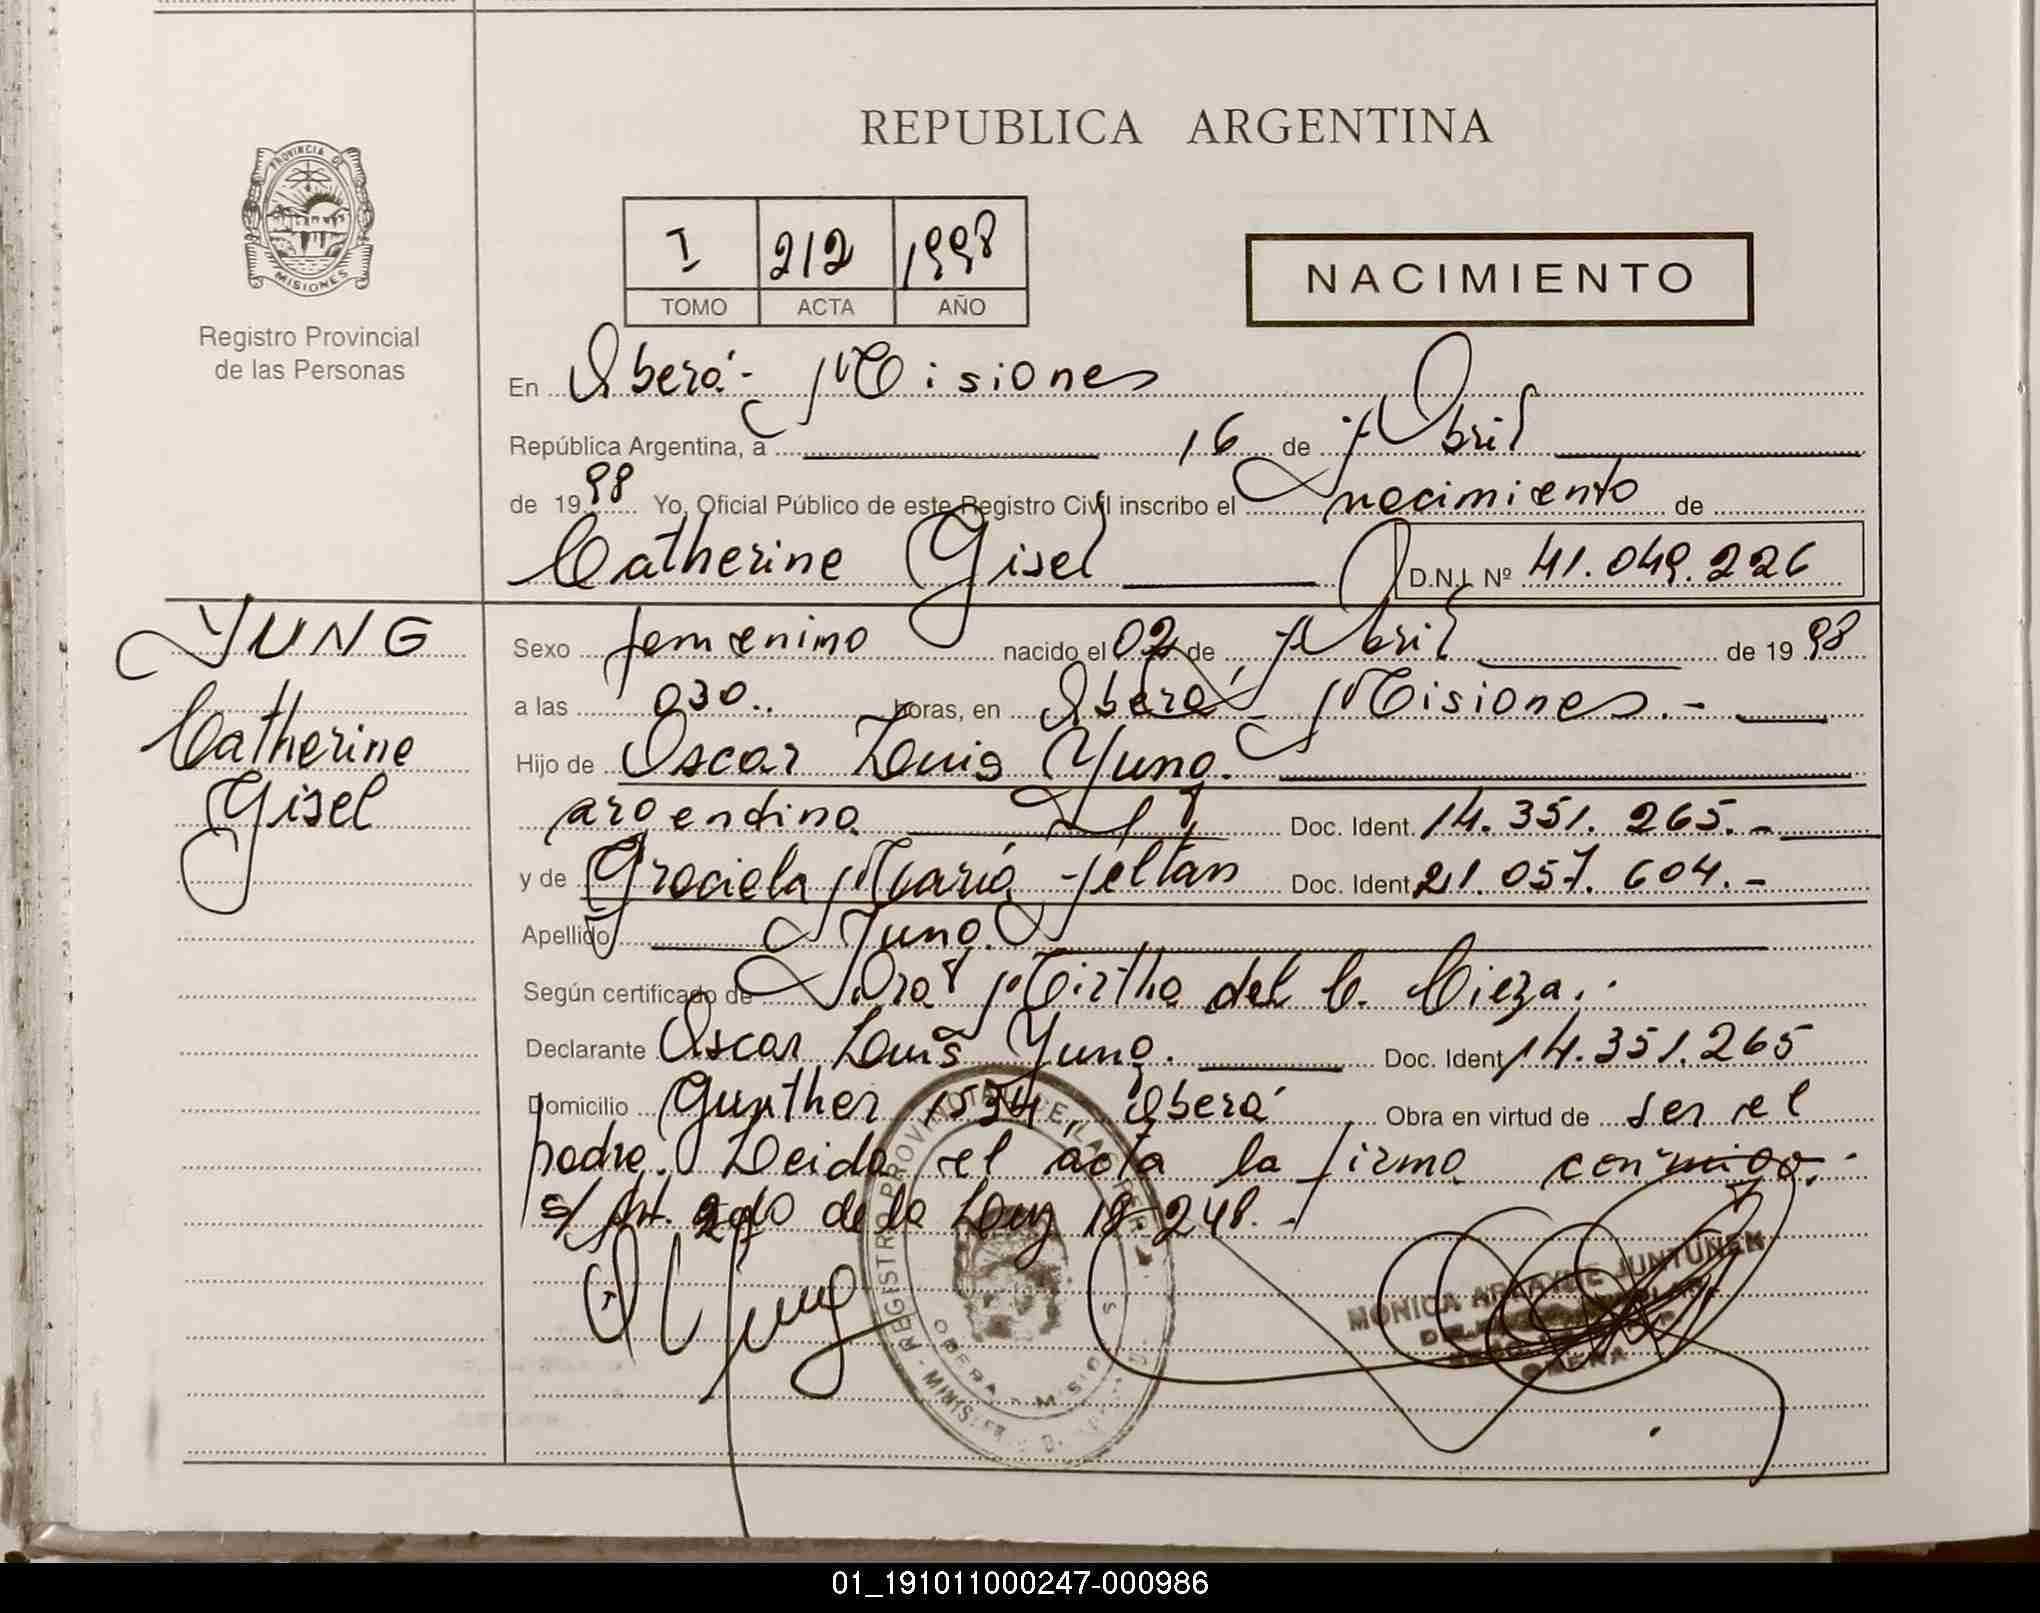 REPUBLICA ARGENTINA
PROVINCIA DE
MISIONES
Registro Provincial
de las Personas
I 212 1998
TOMO ACTA AÑO
NACIMIENTO
En Oberá - Misiones
República Argentina, a 16 de Abril
de 1998 Yo, Oficial Público de este Registro Civil inscribo el nacimiento de
Catherine Gisel D.N.I. Nº 41.049.226
YUNG
Catherine
Gisel
Sexo femenino nacido el 02 de Abril de 1998
a las 030.. horas, en Oberá, Misiones.-
Hijo de Oscar Luis Yung.
argentino Doc. Ident. 14.351.265.-
y de Graciela María Feltan Doc. Ident. 21.057.604.-
Apellido Yung.
Según certificado de Dra Mirtha del C. Cieza.
Declarante Oscar Luis Yung. Doc. Ident. 14.351.265
Domicilio Gunther 1534, Oberá Obra en virtud de ser el
padre. Leida el acta la firma conmigo.-
s/Art. de la Ley 18.248.-
REGISTRO PROVINCIAL DE LAS
OBERA - MISIONES
MONICA JUNTUNEN
OBERA
01_191011000247-000986